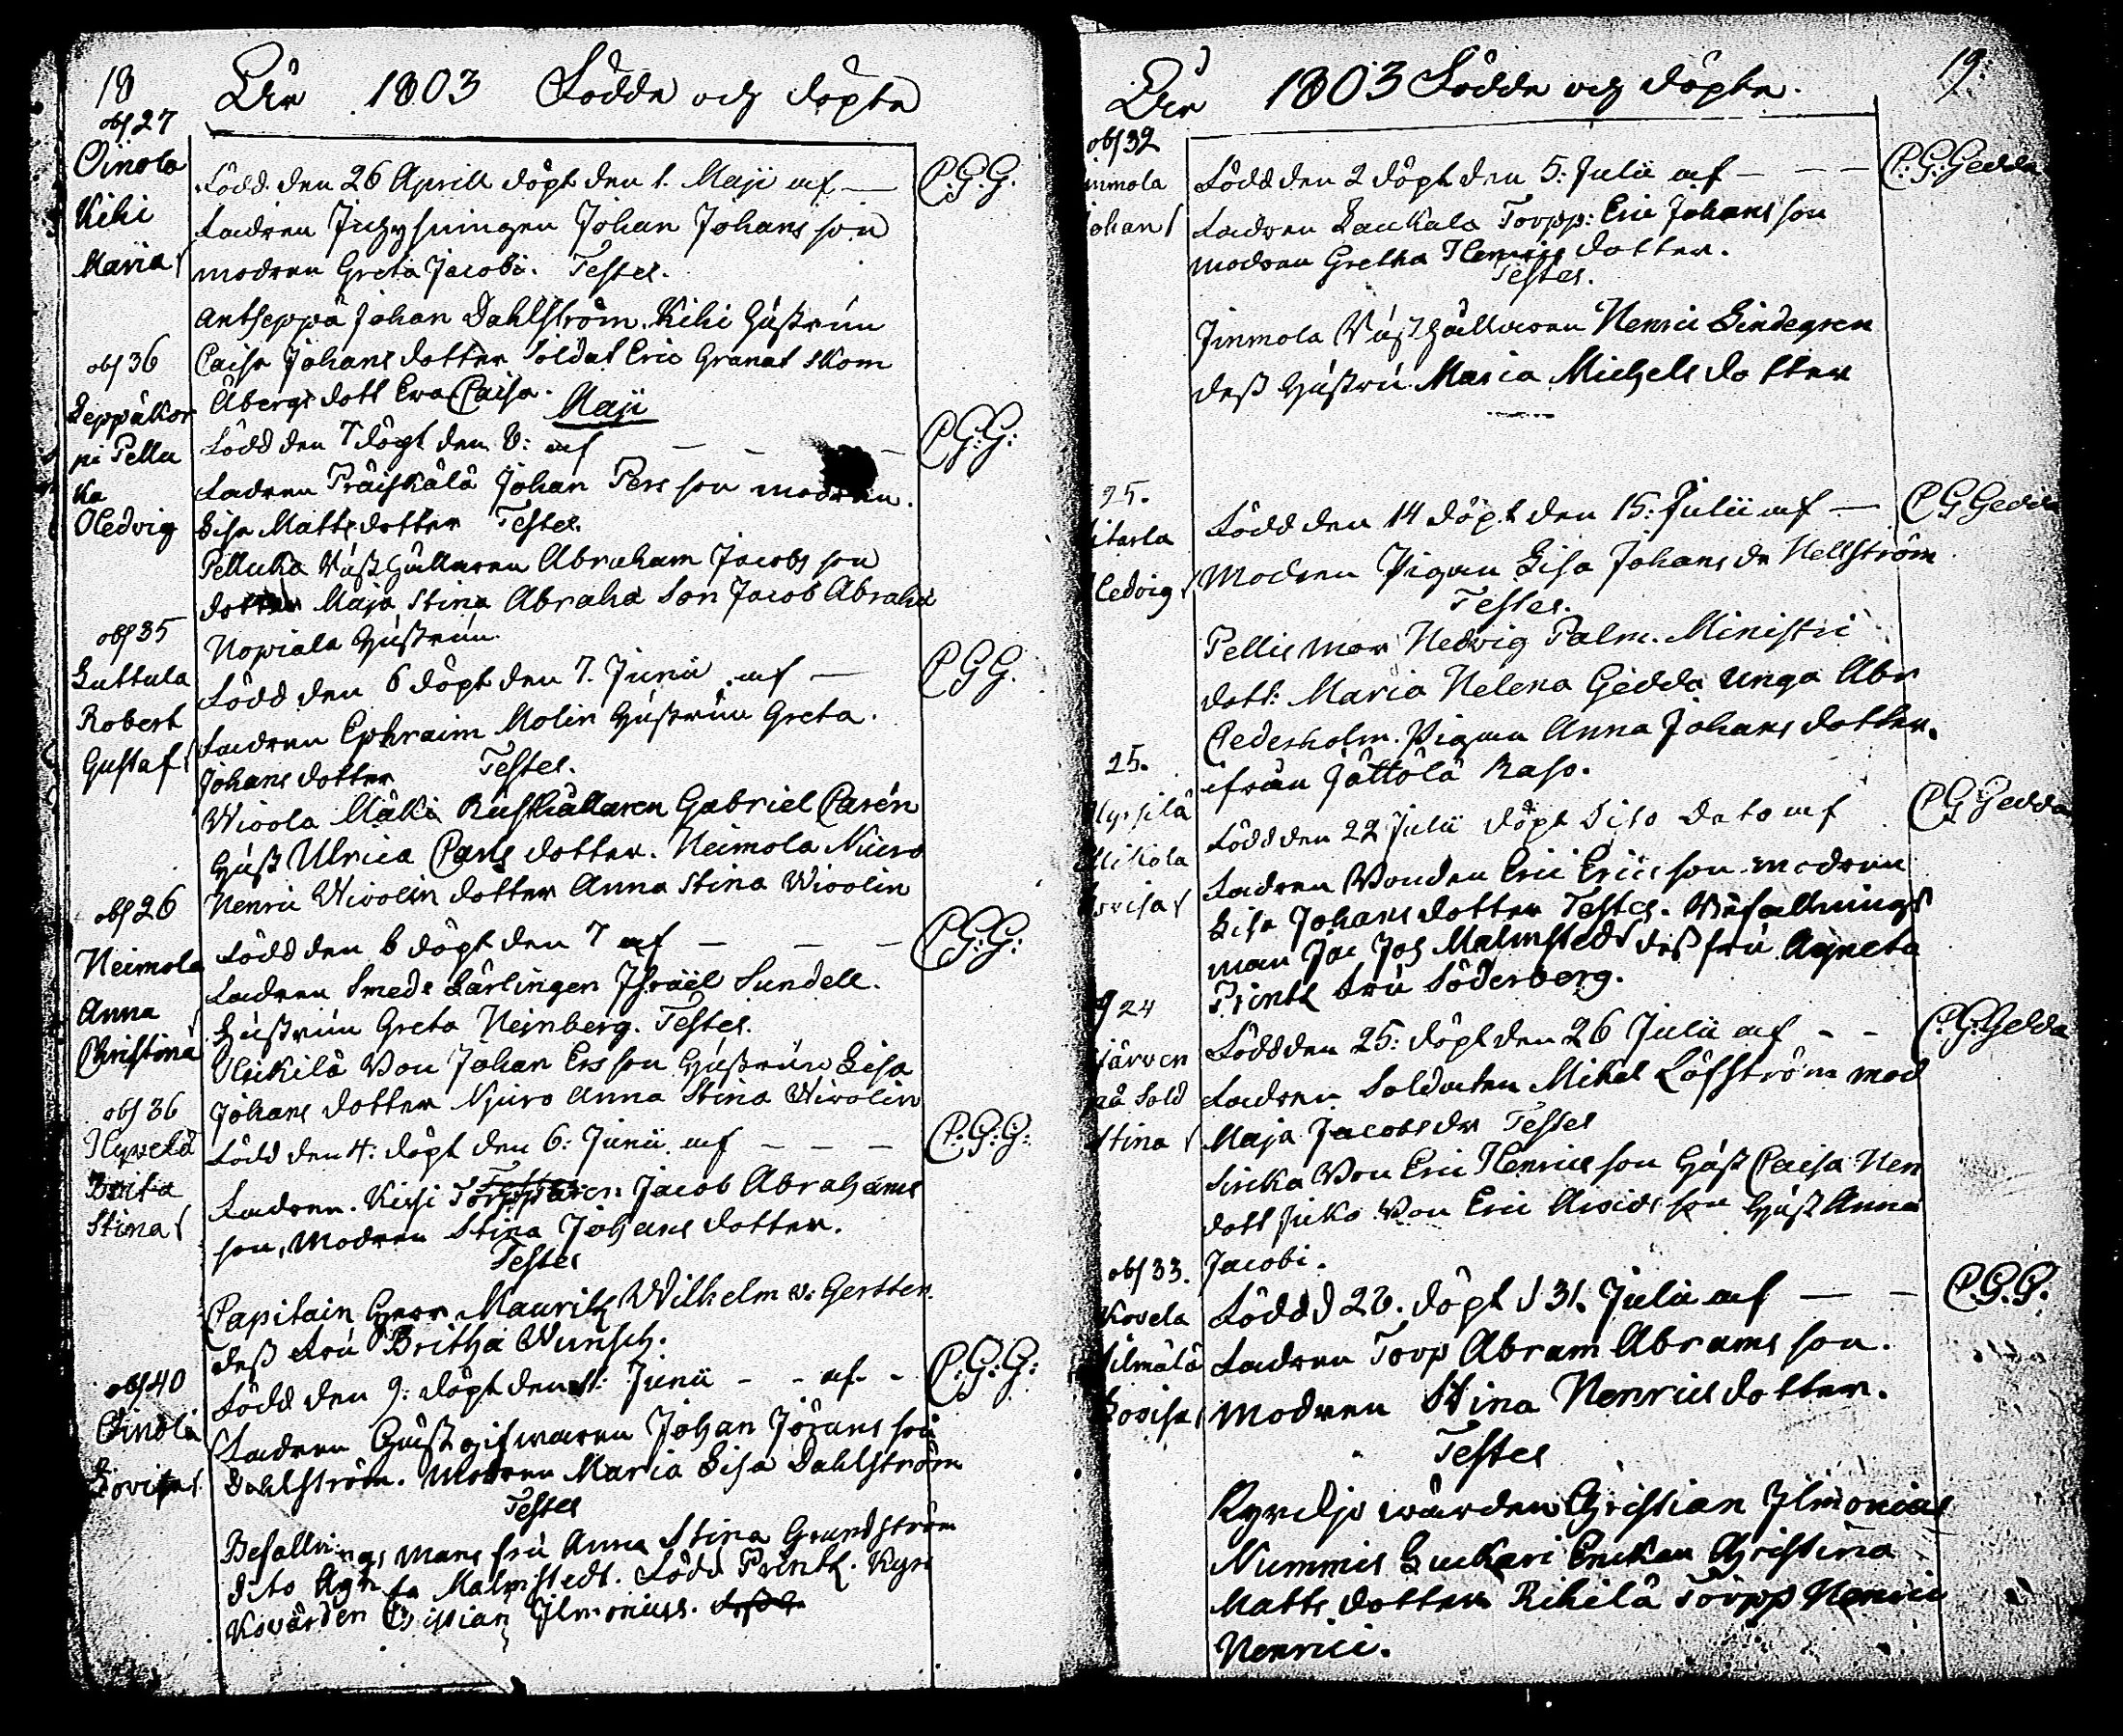 18
År 1803 Födde och döpte
obs 27
Oinola
Kihi
Maria
Född den 26 Aprill döpt den 1. Maji af — C.G.G.
Fadren Inhysningen Johan Johans son
modren Greta Jacobi. Testes.
Antseppä Johan Dahlström. Kihi Hustrun
obs 36
Caisa Johans dotter Soldat Eric Granat Skom
Åbergs dott Eva Caisa.
Maji
Leppäkor
pi Pellu
ka
Hedvig
Född den 7 döpt den 8: af — — — C.G.G:
Fadren Präiskälä Johan Pers son modren.
Lisa Matts dotter Testes.
Pelluka Rusthållaren Abraham Jacobs son
dotter Maja Stina Abraha Son Jacob Abraha
Nopiala Hustrun.
obs 35
Luttula
Robert
Gustaf
Född den 6 döpt den 7. Junii af — C.G.G.
Fadren Ephraim Molin Hustrun Greta.
Johans dotter Testes.
Wioola Mäki Rusthållaren Gabriel Carén
Hust Ulrica Carls dotter. Heimola Niuro
Henric Wivolin dotter Anna Stina Wivolin
obs 26
Heimola
Anna
Christina
Född den 6 döpt den 7 af — — — C.G.G:
Fadren Smeds Lärlingen Israël Sundell.
Hustrun Greta Heinberg. Testes.
Uskilä Bon Johan Ers son Hustrun Lisa
Johans dotter Njuro Anna Stina Wivolin
obs 36
Hyvelä
Brita
Stina
Född den 4: döpt den 6: Junii af — — — C.G.G:
Fadren. Kirsi Torpparen Jacob Abrahams
son, Modren Stina Johans dotter.
Testes
Capitain Herr Mauritz Wilhelm v: Gertten
dess Fru Britha Wunsch.
obs 40
Oinola
Lovisa
Född den 9: döpt den 11: Junii - - af - C.G.G:
Fadren Gästgifwaren Johan Jörans son
Dahlström. Modren Maria Lisa Dahlström
Testes
Befallnings mans fru Anna Stina Grundström
dito Agneta Malmstedt. Född Printz. Kyrc
kovärden Christian Ilmonius.
År 1803 Födde och döpte. 19:
obs 32
inmola
Johan
Född den 2 döpt den 5: Julii af — — — C.G.Gedda
Fadren Laukala Torpp: Eric Johans son
modren Gretha Henrics dotter.
Testes.
Jinmola Rusthållaren Henric Lindegren
dess Hustru Maria Michels dotter
25.
itarla
Hedvig
Född den 14 döpt den 15: Julii af — C G Gedda
Modren Pigan Lisa Johans dr Hellström
Testes.
Pellis mor Hedvig Palm. Ministri
dott: Maria Helena Gedda unga Abr
Cederholm. Pigan Anna Johans dotter.
ifrån Jättölä Raso.
25.
Hypilä
Mikola
Lovisa
Född den 22 Julii döpt Dito Dato af C G Gedda
Fadren Bonden Eric Erics son modren
Lisa Johans dotter Testes. Befallnings
man Jac Joh Malmstedt dess fru Agneta
Printz Fru Söderberg.
24
Järven
pä Sold
Stina
Född den 25: döpt den 26 Julii af - - C.G.Gedda
Fadren Soldaten Mikel Löfström mod
Maja Jacobs dr Testes
Sirika Bon Eric Henrics son Hust Caisa Hen
dott Juko Bon Eric Arvids son Hust Anna
Jacobi.
obs 33.
Kovela
Lovisa
Född d 28. döpt d 31. Julii af — — C.G.G.
Fadren Torp Abram Abrams son.
Modren Stina Henrics dotter.
Testes
Kyrckjo wärden Christian Ilmonius
Nummis Luckari Enckan Christina
Matts dotter Rihilä Torpp Henric
Henrici.